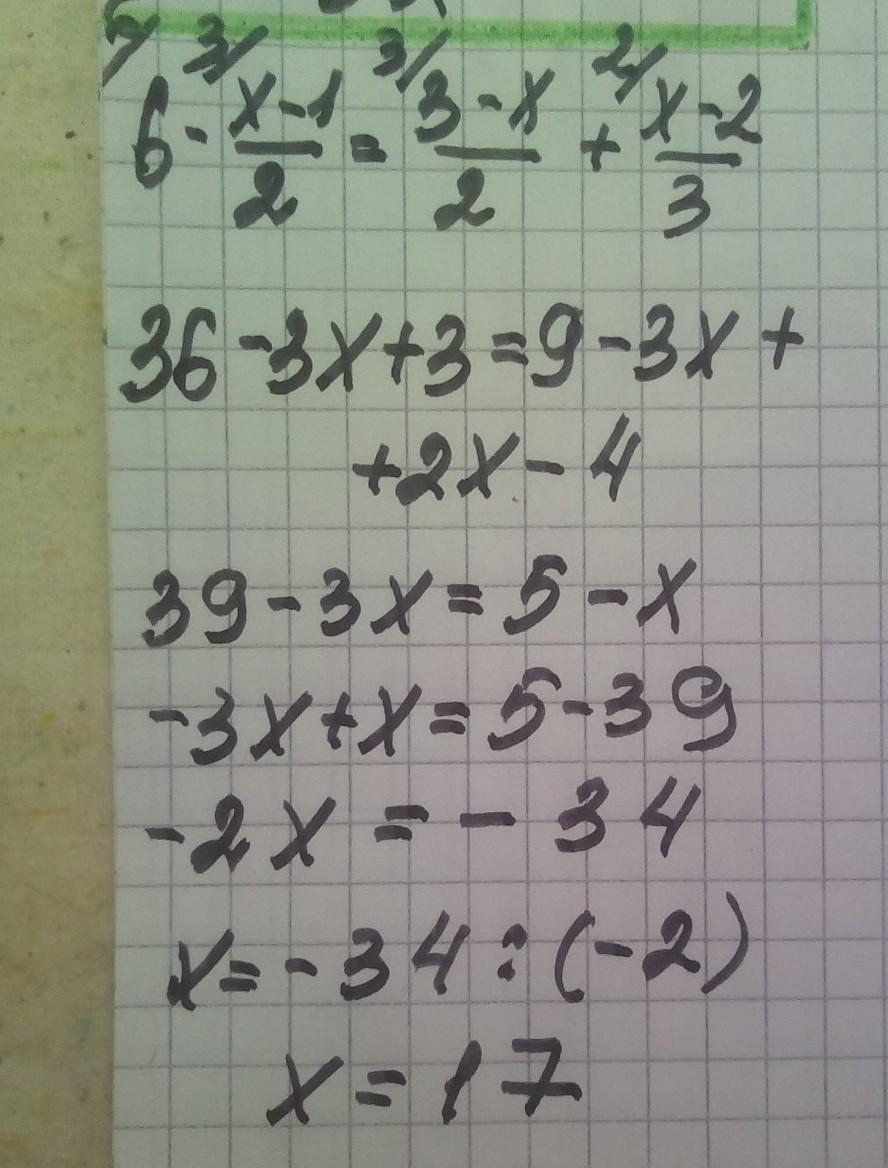 3/ 3/ 2/
6 - x-1/2 = 3-x/2 + x-2/3
36-3x+3=9-3x+
+2x-4
39-3x=5-x
-3x+x=5-39
-2x=-34
x=-34:(-2)
x=17